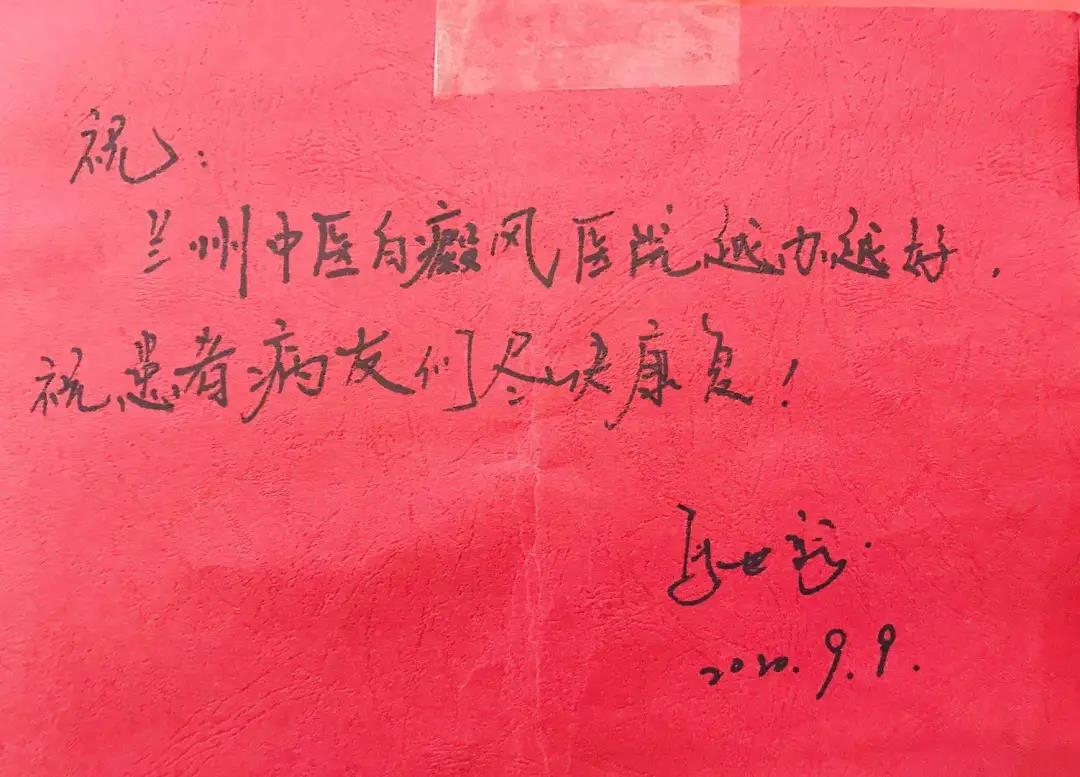 祝:
兰州中医白癜风医院越办越好.
祝患者病友们尽快康复!
2020.9.9.